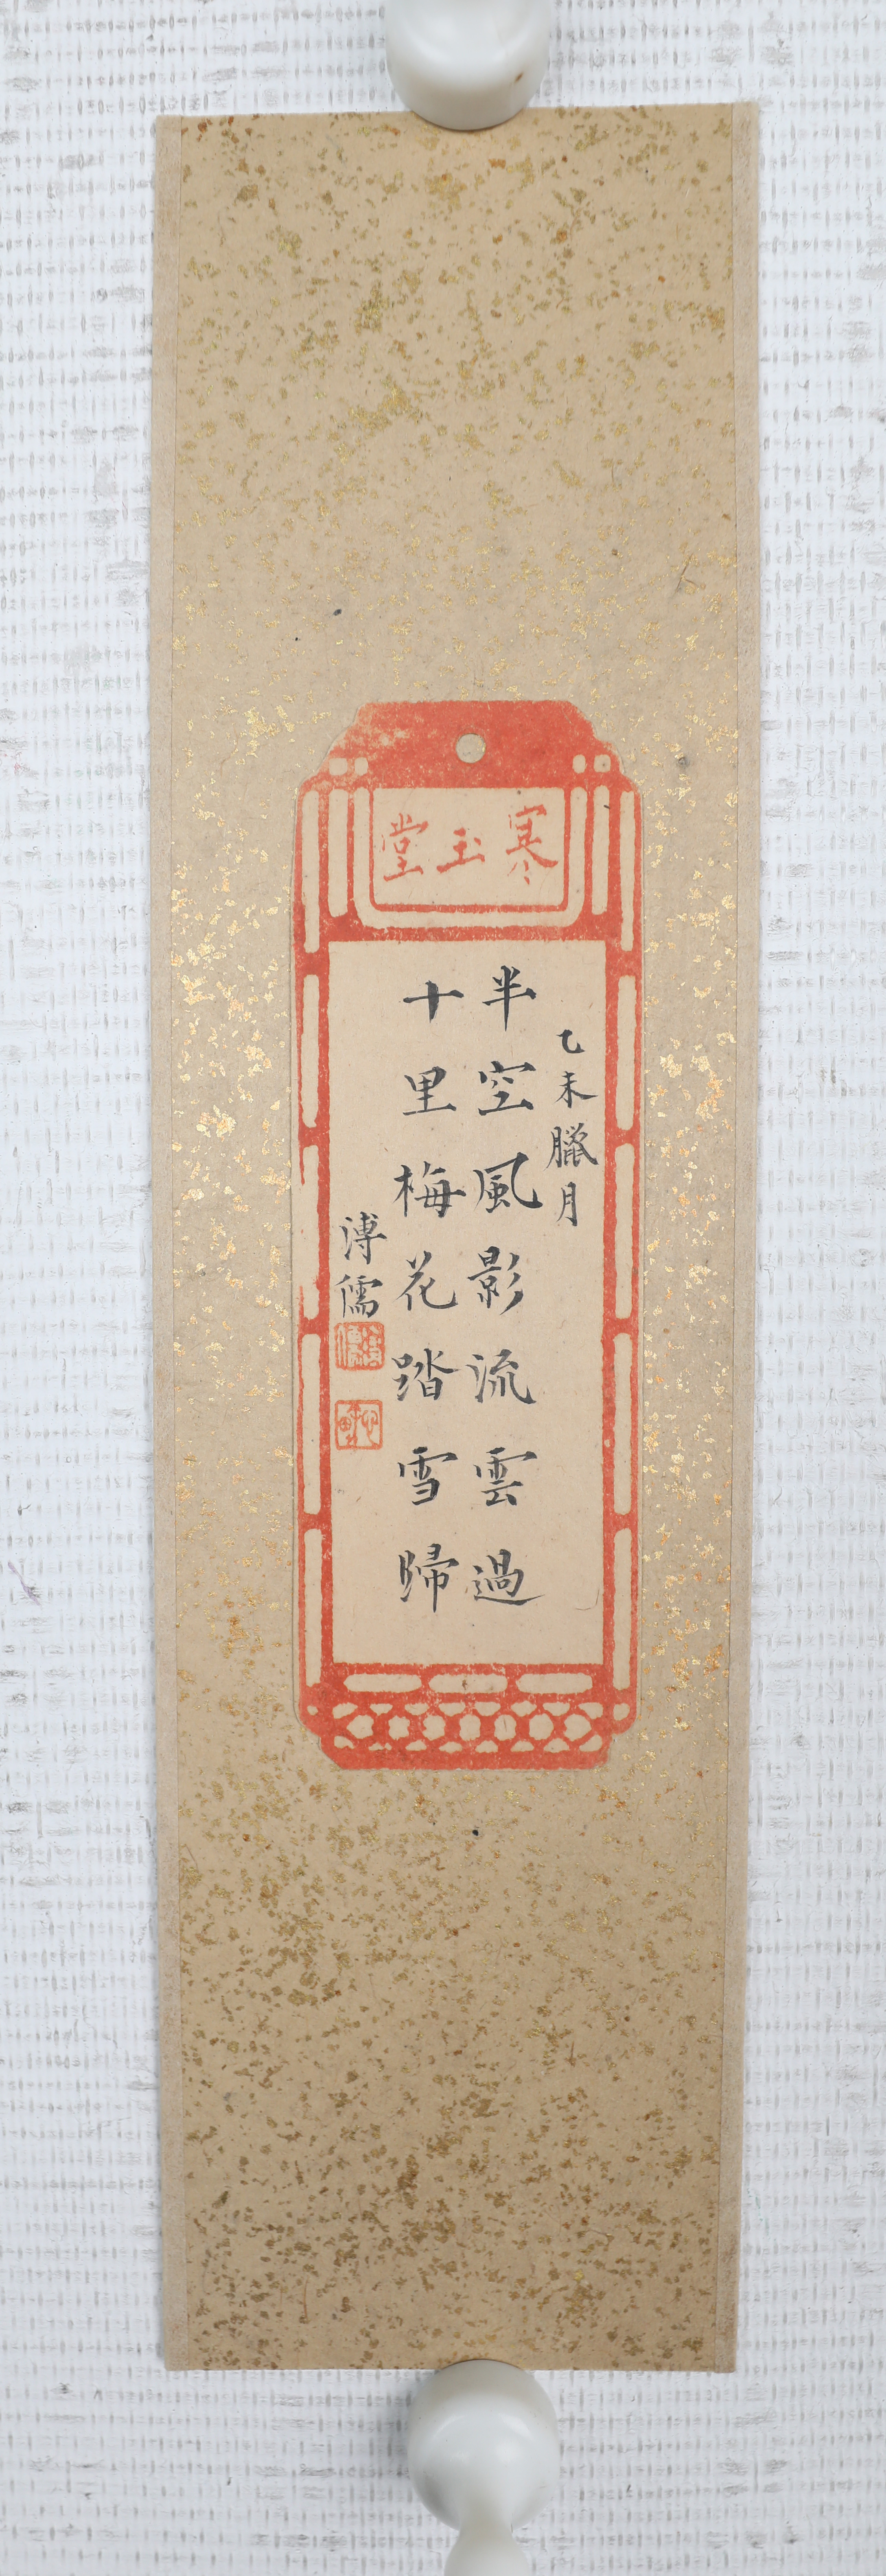 寒玉堂
乙未臘月
半空風影流雲過
十里梅花踏雪歸
溥儒
溥儒